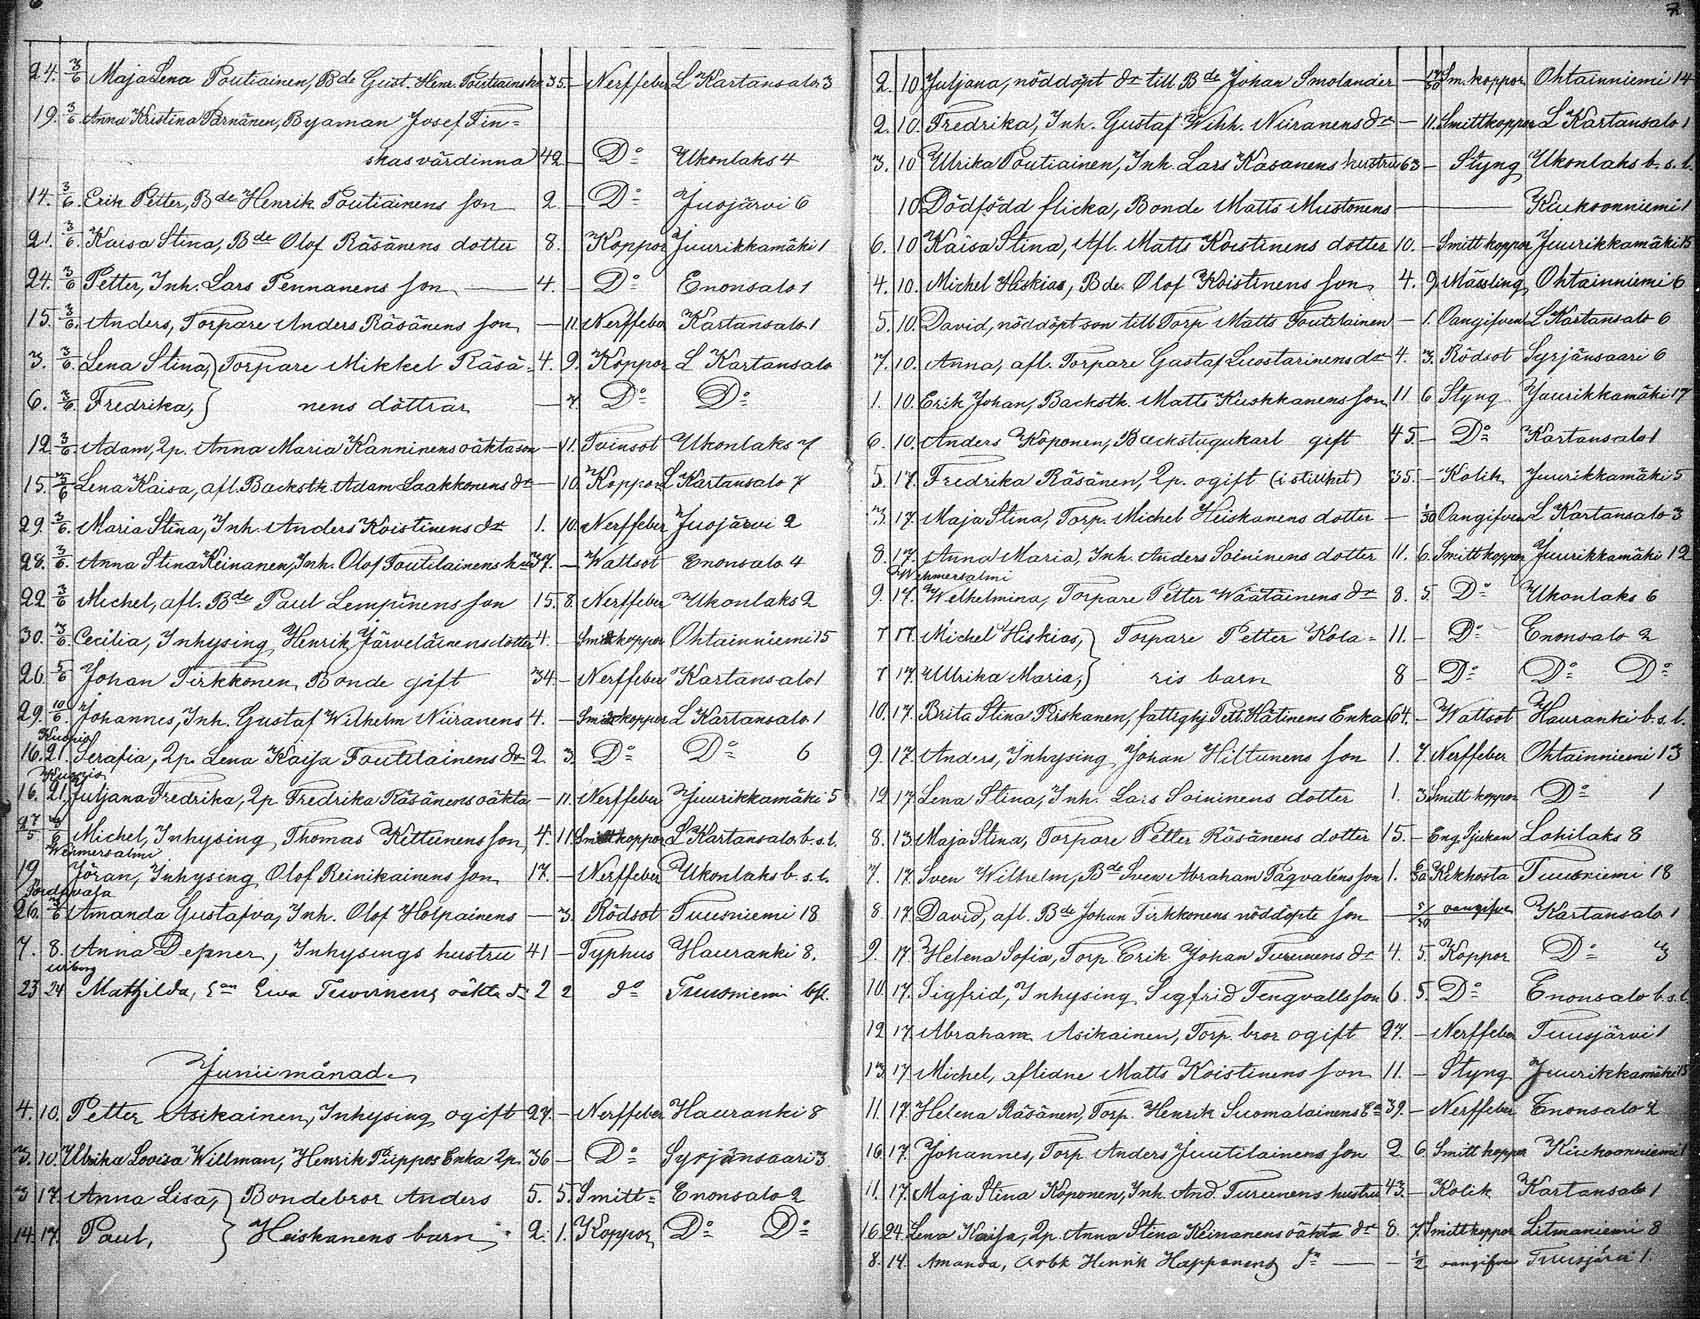 6
24. 3/6 Maja Lena Poutiainen, Bde Gust. Henr. Poutiainens 35 - Nerffeber L Kartansalo 3
19. 3/6 Anna Kristina Parnänen, Byaman Josef Tin=
skas värdinna 42 - Do Ukonlaks 4
14. 3/6 Erik Petter, Bde Henrik Poutiainens son 2. - Do Juojärvi 6
21. 3/6 Kaisa Stina, Bde Olof Räsänens dotter 8. Koppor Juurikkamäki 1
24. 3/6 Petter, Inh. Lars Pennanens son 4. - Do Enonsalo 1
15. 3/6 Anders, Torpare Anders Räsänens son - 11. Nerffeber Kartansalo 1
3. 3/6 Lena Stina, } Torpare Mikkel Räsä= 4. 9. Koppor L Kartansalo
6. 3/6 Fredrika, } nens döttrar - 7. Do Do
12. 3/6 Adam, 2p. Anna Maria Kanninens oäkta son - 11. Tvinsot Ukonlaks 7
15. 3/6 Lena Kaisa, afl. Backstk Adam Laakkonens dr - 10. Koppor L Kartansalo 7
29. 3/6 Maria Stina, Inh. Anders Koistinens dr 1. 10. Nerffeber Juojärvi 2
28. 3/6 Anna Stina Keinanen, Inh. Olof Toutilainens h 37. - Wattsot Enonsalo 4
22 3/6 Michel, afl. Bde Paul Lempinens son 15. 8. Nerffeber Ukonlaks 2
30. 3/6 Cecilia, Inhysing Henrik Järveläinens dotter 4. - Smittkoppor Ohtainniemi 15
26. 5/6 Johan Tirkkonen, Bonde gift 34 - Nerffeber Kartansalo 1
29. 10/6 Johannes, Inh. Gustaf Wilhelm Niiranens 4. - Smittkoppor L Kartansalo 1
Kuopio
16. 21. Serafia, 2p. Lena Kaisa Toutilainens dr 2. 3. Do Do 6
Kuopio
16. 21. Juljana Fredrika, 2p Fredrika Räsänens oäkta - 11. Nerffeber Juurikkamäki 5
27/5 3/6 Michel, Inhysing Thomas Kettunens son 4. 11 Smittkoppor L Kartansalo b.s.l.
Wehmersalmi
19 Jöran, Inhysing Olof Reinikainens son 17. - Nerffeber Ukonlaks b.s.l.
26. 3/6 Amanda Gustafva, Inh. Olof Holpainens - 3. Rödsot Tuusniemi 18
7. 8. Anna Depner, Inhysings hustru 41 - Typhus Hauranki 8.
23 24 Mathilda, Ewa Teurnens oäkta dr 2 2 do Tuusniemi
Junii månad.
4. 10. Petter Asikainen, Inhysing ogift 27. - Nerffeber Hauranki 8
3. 10. Ulrika Lovisa Willman, Henrik Piippos Enka 2p. 36 - Do Syrjänsaari 3
3 17. Anna Lisa, } Bondebror Anders 5. 5. Smitt= Enonsalo 2
14. 17. Paul, } Heiskanens barn 2. 1. Koppor Do Do
7.
2. 10. Juljana, nöddöpt dr till Bde Johan Smolander - 17/30 Sm.koppor Ohtainniemi 14
2. 10. Fredrika, Inh. Gustaf Wilh. Niiranens dr - 11. Smittkoppor L Kartansalo 1
3. 10 Ulrika Poutiainen, Inh. Lars Kasanens hustru 63 - Styng Ukonlaks b.s.l.
10 Dödfödd flicka, Bonde Matts Mustonens Kiukoonniemi 1
6. 10 Kaisa Stina, Afl. Matts Koistinens dotter 10. - Smittkoppor Juurikkamäki 15
4. 10. Michel Hiskias, Bde. Olof Koistinens son 4. 9. Mässling Ohtainniemi 6
5. 10. David, nöddöpt son till Torp Matts Toutilainen - 1. Oangifven L Kartansalo 6
7. 10. Anna, afl. Torpare Gustaf Luostarinens dr 4. 3. Rödsot Syrjänsaari 6
1. 10. Erik Johan, Backstk. Matts Kiiskkanens son 11 6 Styng Juurikkamäki 17
6. 10. Anders Koponen, Backstugukarl gift 45. - Do Kartansalo 1
5. 17. Fredrika Räsänen, 2p. ogift (i stillhet) 35. - Kolik Juurikkamäki 5
3. 17. Maja Stina, Torp. Michel Heiskanens dotter - 1/30 Oangifven L Kartansalo 3
8. 17. Anna Maria, Inh. Anders Soininens dotter 11. 6. Smittkoppor Juurikkamäki 12
Wehmersalmi
9. 17. Welhelmina, Torpare Petter Wäätäinens dr 8. 5. Do Ukonlaks 6
7 17. Michel Hiskias, } Torpare Petter Kola= 11. - Do Enonsalo 2
7 17. Ullrika Maria, } ris barn 8 - Do Do Do
10. 17. Brita Stina Piiskanen, fattighj Pett. Hätinens Enka 64. - Wattsot Hauranki b.s.l.
9. 17. Anders, Inhysing Johan Hiltunens son 1. 7. Nerffeber Ohtainniemi 13
12 17. Lena Stina, Inh. Lars Soininens dotter 1. 3 Smittkoppor Do 1
8. 13. Maja Stina, Torpare Petter Räsänens dotter 15. - Eng. Sjukan Lohilaks 8
7. 17. Sven Wilhelm, Bde Sven Abraham Paqvalens son 1. Kikhosta Tuusniemi 18
8. 17. David, afl. Bde Johan Tirkkonens nöddöpte son - oangifven Kartansalo 1
2. 17. Helena Sofia, Torp. Erik Johan Turunens dr 4. 5. Koppor Do 3
10. 17. Sigfrid, Inhysing Sigfrid Tengvalls son 6. 5. Do Enonsalo b.s.l.
12 17. Abraham Asikainen, Torp. bror ogift 27. - Nerffeber Tuusjärvi 1
13 17 Michel, aflidne Matts Koistinens son 11. - Styng Juurikkamäki 15
11. 17. Helena Räsänen, Torp. Henrik Suomalainens Ea 39. - Nerffeber Enonsalo 2
16 17. Johannes, Torp. Anders Juutilainens son 2 6 Smittkoppor Kiukoonniemi 1
11. 17. Maja Stina Koponen, Inh. And. Turunens hustru 43. - Kolik Kartansalo 1
16. 24. Lena Kaisa, 2p. Anna Stina Keinanens oäkta dr 8. 7. Smittkoppor Litmaniemi 8
8. 14. Amanda, Arbk Henrik Happonens - 1/2 oangifven Tuusjärvi 1.